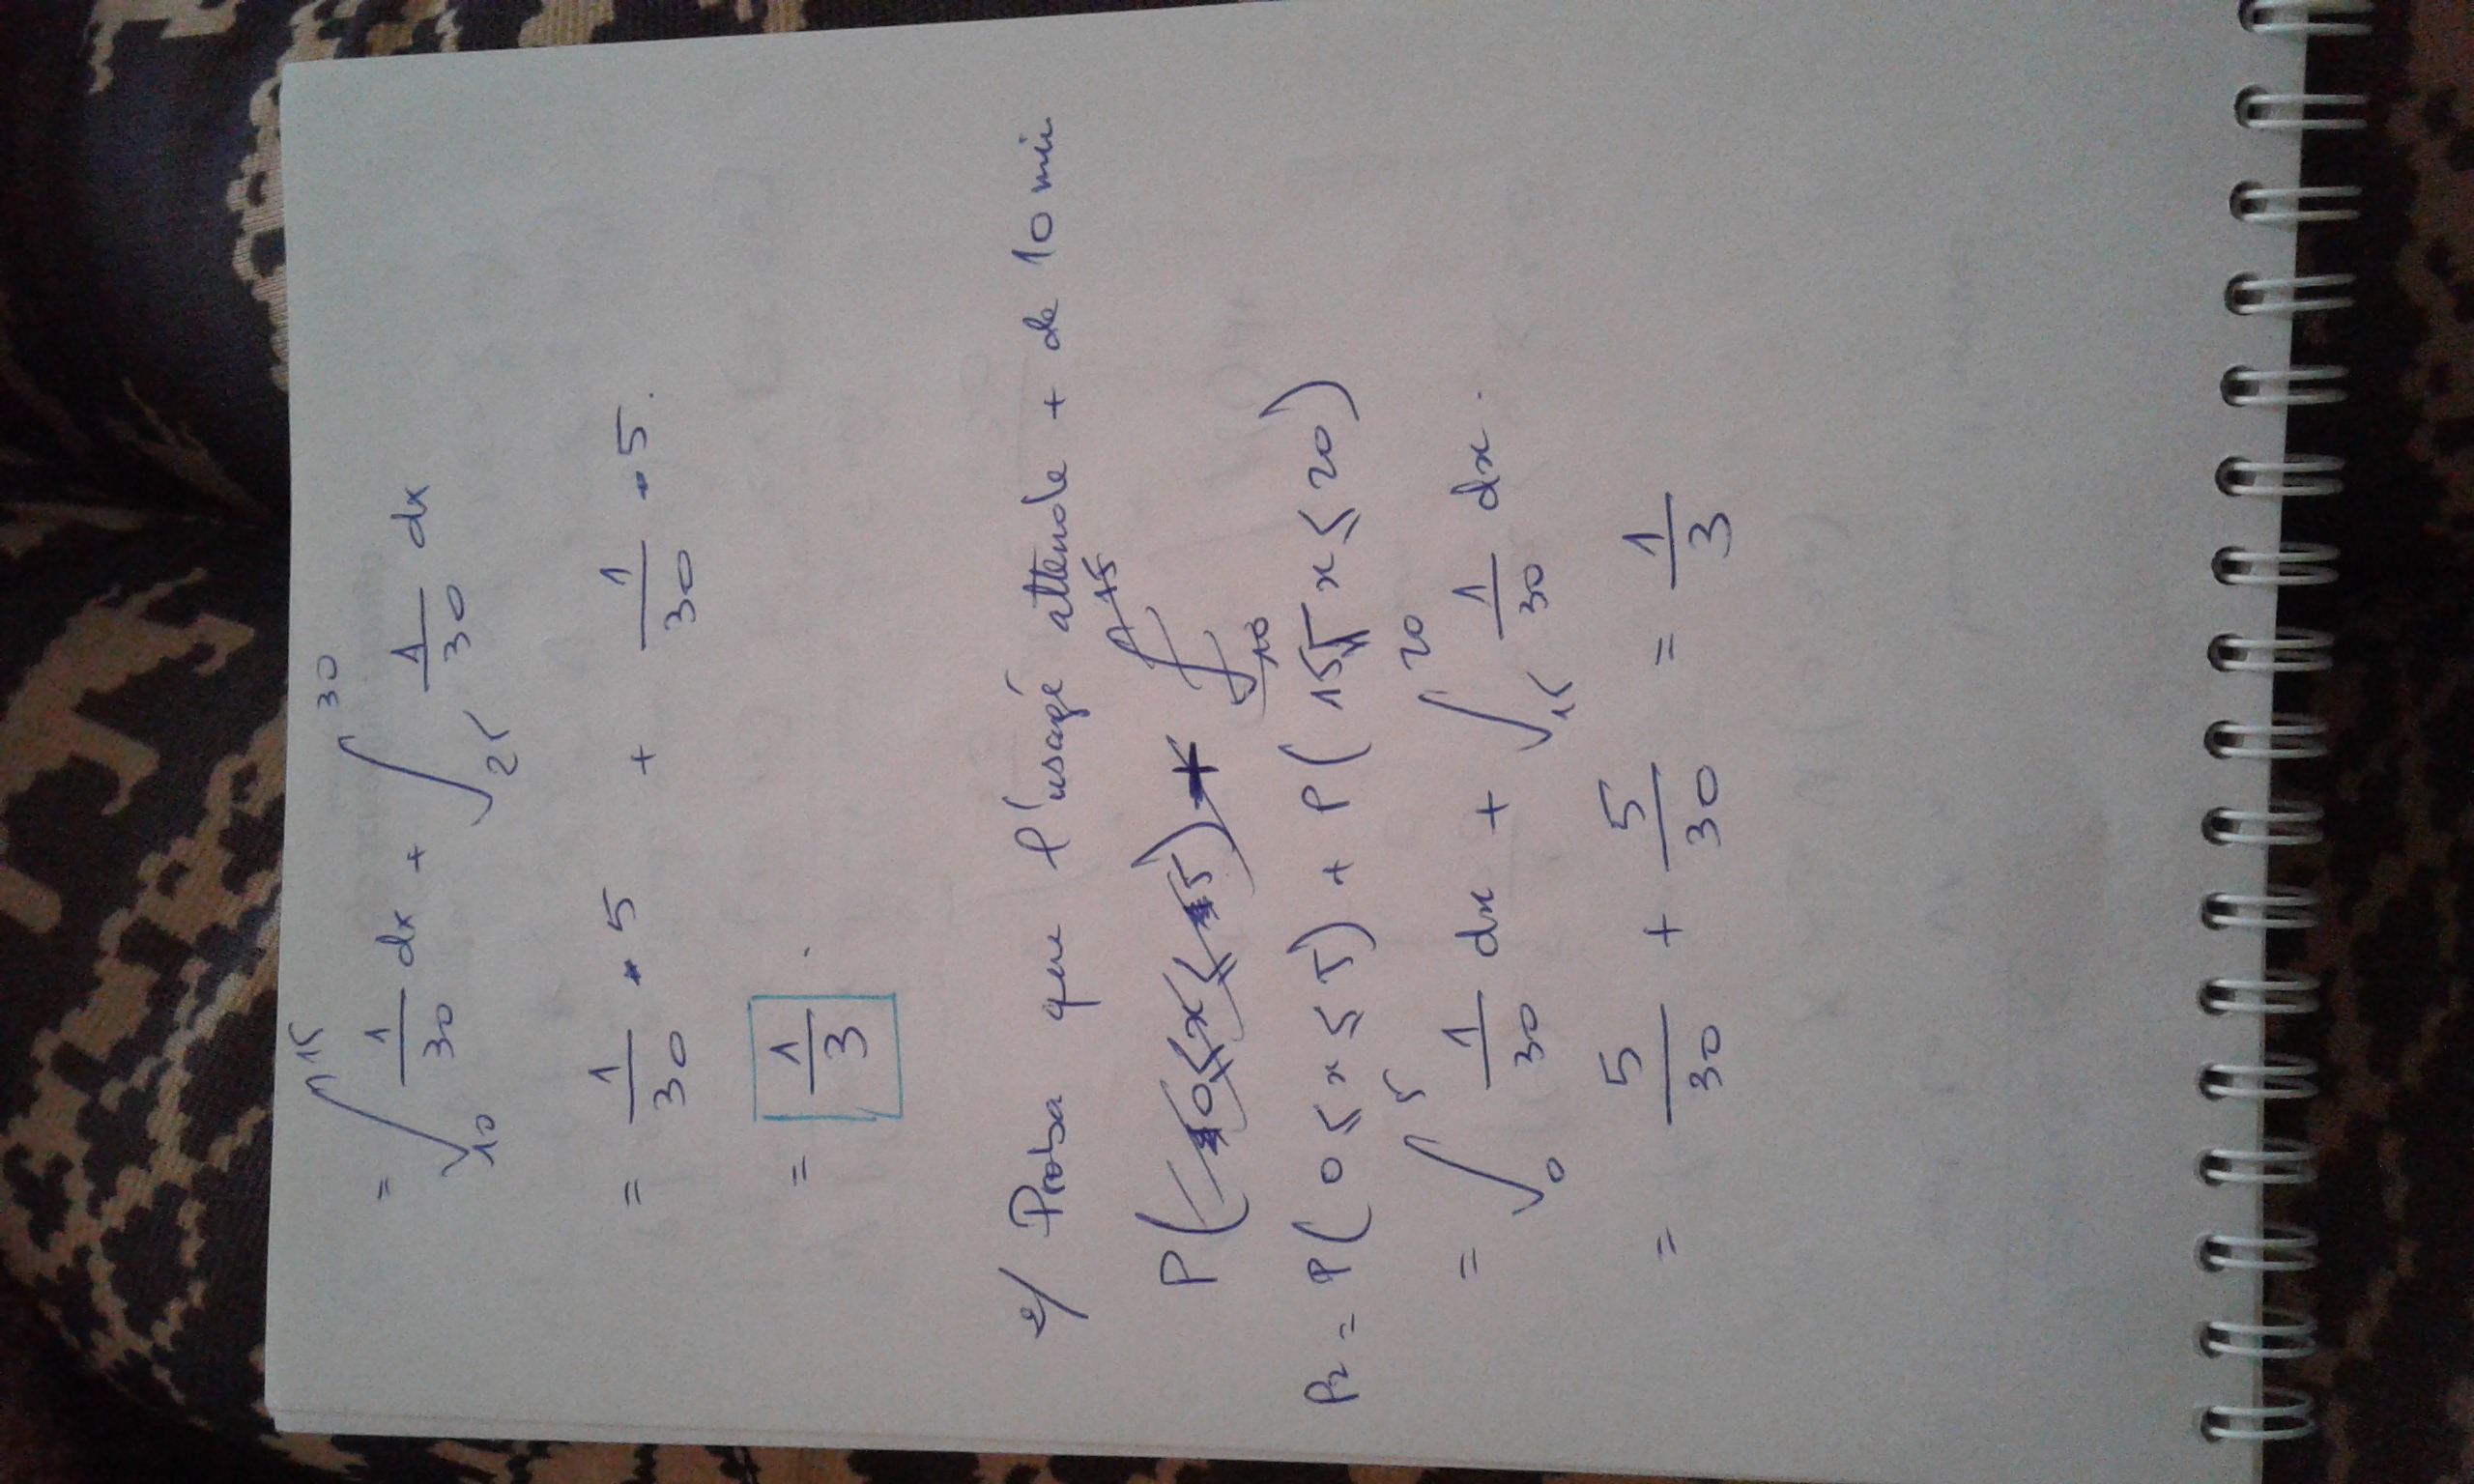 = ∫₁₀¹⁵ 1/30 dx + ∫₂₅³⁰ 1/30 dx
= 1/30 • 5 + 1/30 • 5.
= 1/3 .
2/ Proba que l'usagé attende + de 10 min
P( 10 ≤ x ≤ 15 ) + ∫₁₀¹⁵
P2 = P( 0 ≤ x ≤ 5 ) + P( 15 ≤ x ≤ 20 )
= ∫₀⁵ 1/30 dx + ∫₁₅²⁰ 1/30 dx .
= 5/30 + 5/30 = 1/3